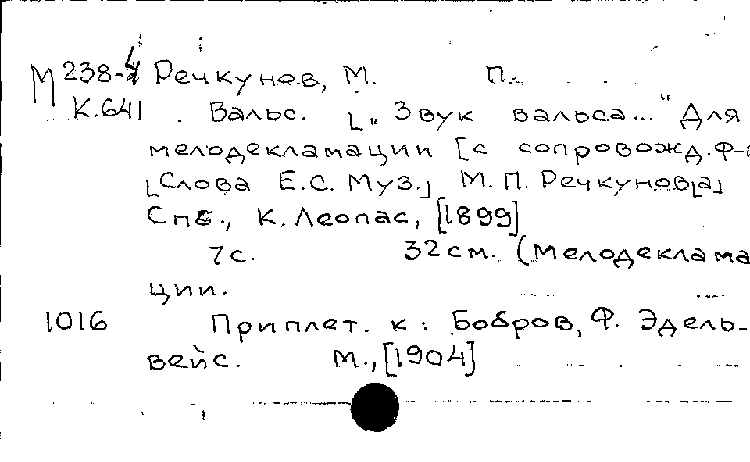 М 238-4 Речкунов, М. П.
К.641 Вальс. [„Звук вальса..." Для
мелодекламации [с сопровожд. ф-
[Слова Е.С. Муз.] М.П. Речкунов[а]
Спб., К. Леопас, [1899]
7с. 32см. (Мелодеклама
ции.
1016 Приплет. к: Бобров, Ф. Эдель-
вейс. М., [1904]